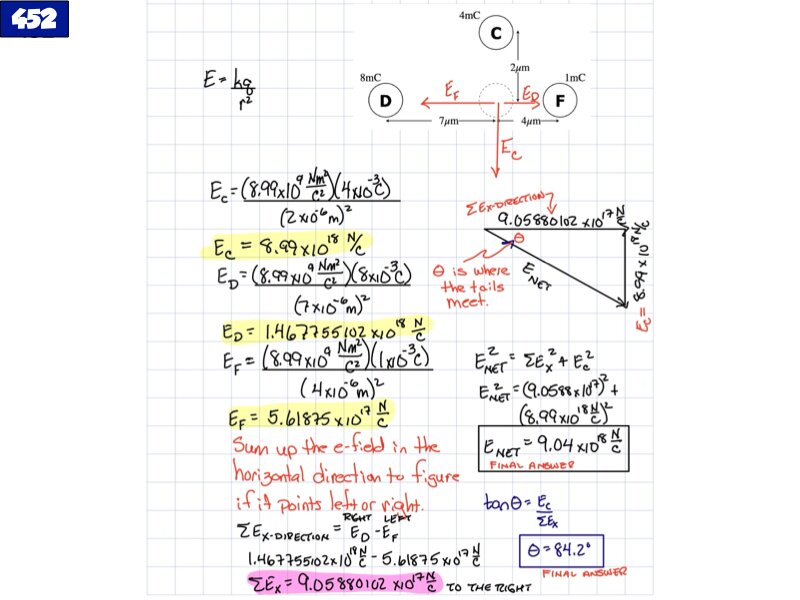 452
4mC
C
2μm
8mC
1mC
E = kq/r²
D
E_F
E_D
F
7μm
4μm
E_C
E_C = (8.99x10⁹ Nm²/C²)(4x10⁻³C)
(2x10⁻⁶m)²
E_C = 8.99x10¹⁸ N/C
E_D = (8.99x10⁹ Nm²/C²)(8x10⁻³C)
(7x10⁻⁶m)²
E_D = 1.467755102 x10¹⁸ N/C
E_F = (8.99x10⁹ Nm²/C²)(1x10⁻³C)
(4x10⁻⁶m)²
E_F = 5.61875 x10¹⁷ N/C
Sum up the e-field in the
horizontal direction to figure
if it points left or right.
RIGHT LEFT
ΣE_X-DIRECTION = E_D - E_F
1.467755102x10¹⁸ N/C - 5.61875 x10¹⁷ N/C
ΣE_X = 9.05880102 x10¹⁷ N/C TO THE RIGHT
ΣE_X-DIRECTION
9.05880102 x10¹⁷ N/C
θ
θ is where
the tails
meet.
E_NET
E_C = 8.99x10¹⁸ N/C
E²_NET = ΣE_X² + E_C²
E²_NET = (9.0588x10¹⁷)² +
(8.99x10¹⁸ N/C)²
E_NET = 9.04 x10¹⁸ N/C
FINAL ANSWER
tanθ = E_C/ΣE_X
θ = 84.2°
FINAL ANSWER